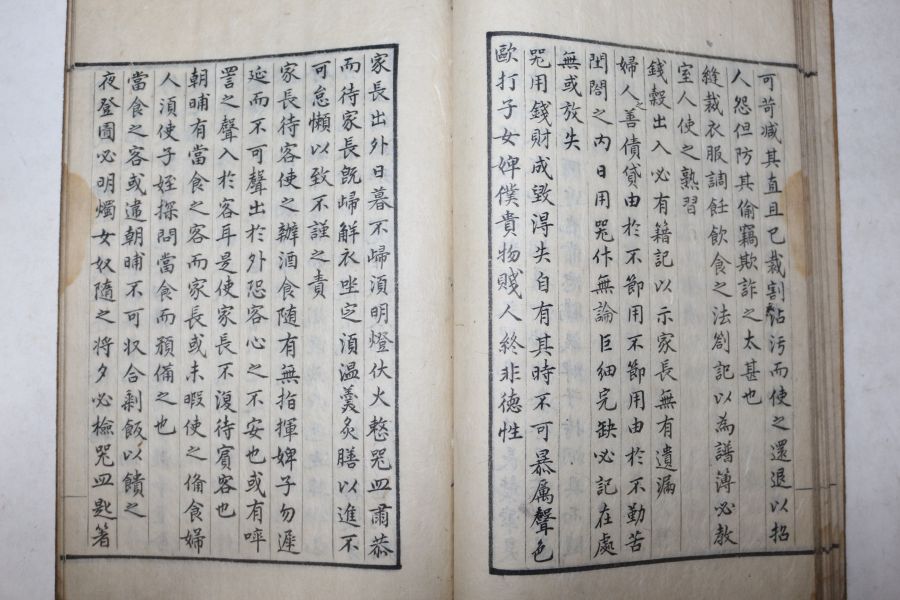 可苛減其直且已裁割沾污而使之還退以招
人怨但防其偷竊欺詐之太甚也
縫裁衣服調飪飲食之法劄記以為譜薄必教
室人使之熟習
錢穀出入必有籍記以示家長無有遺漏
婦人之善債貸由於不節用不節用由於不勤苦
閨閤之內日用咒作無論巨細完缺必記在處
無或放失
咒用錢財成毀得失自有其時不可暴厲聲色
歐打子女婢僕貴物賤人終非德性
家長出外日暮不歸須明燈伏火整咒皿肅恭
而待家長旣歸解衣坐定須温羹炙膳以進不
可怠懶以致不謹之責
家長待客使之辦酒食随有無指揮婢子勿遅
延而不可聲出於外恐客心之不安也或有啐
詈之聲入於客耳是使家長不復待賓客也
朝晡有當食之客而家長或未暇使之俻食婦
人須使子姪探問當食而預備之也
當食之客或違朝晡不可収合剩飯以饋之
夜登圊必明燭女奴隨之將夕必檢咒皿匙箸